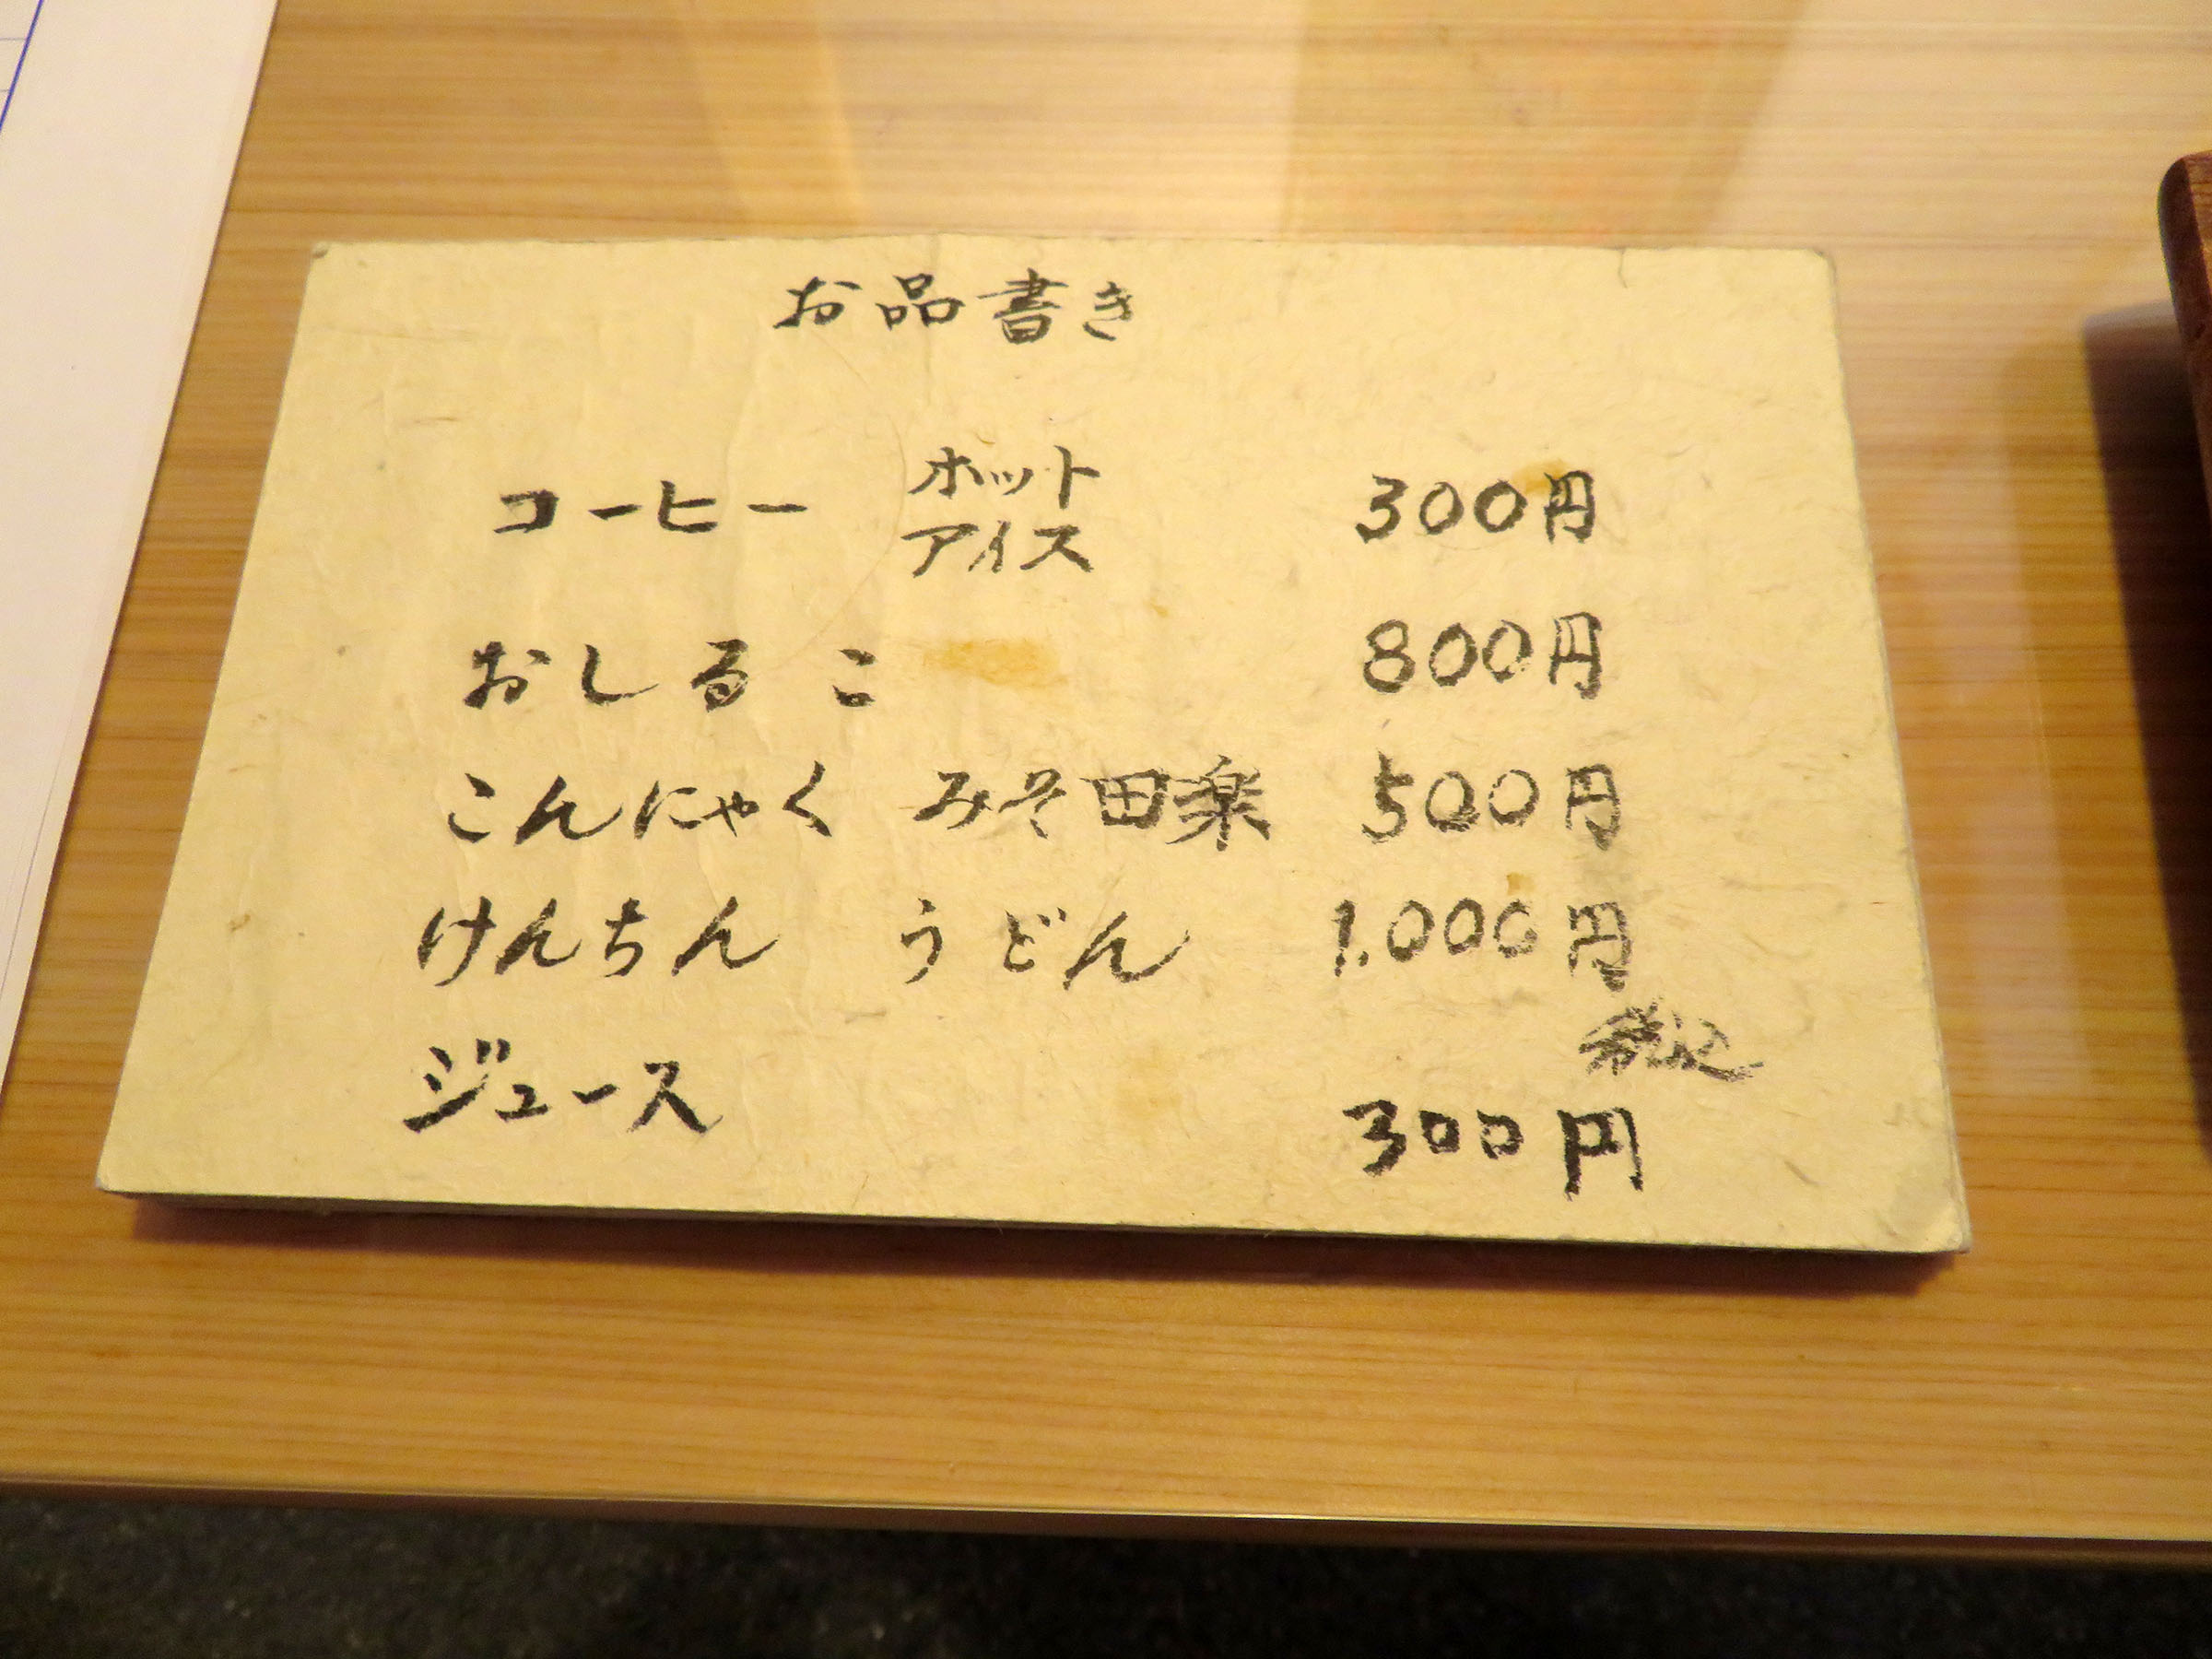 お品書き
コーヒー ホット アイス 300円
おしるこ 800円
こんにゃく みそ田楽 500円
けんちん うどん 1.000円
税込
ジュース 300円